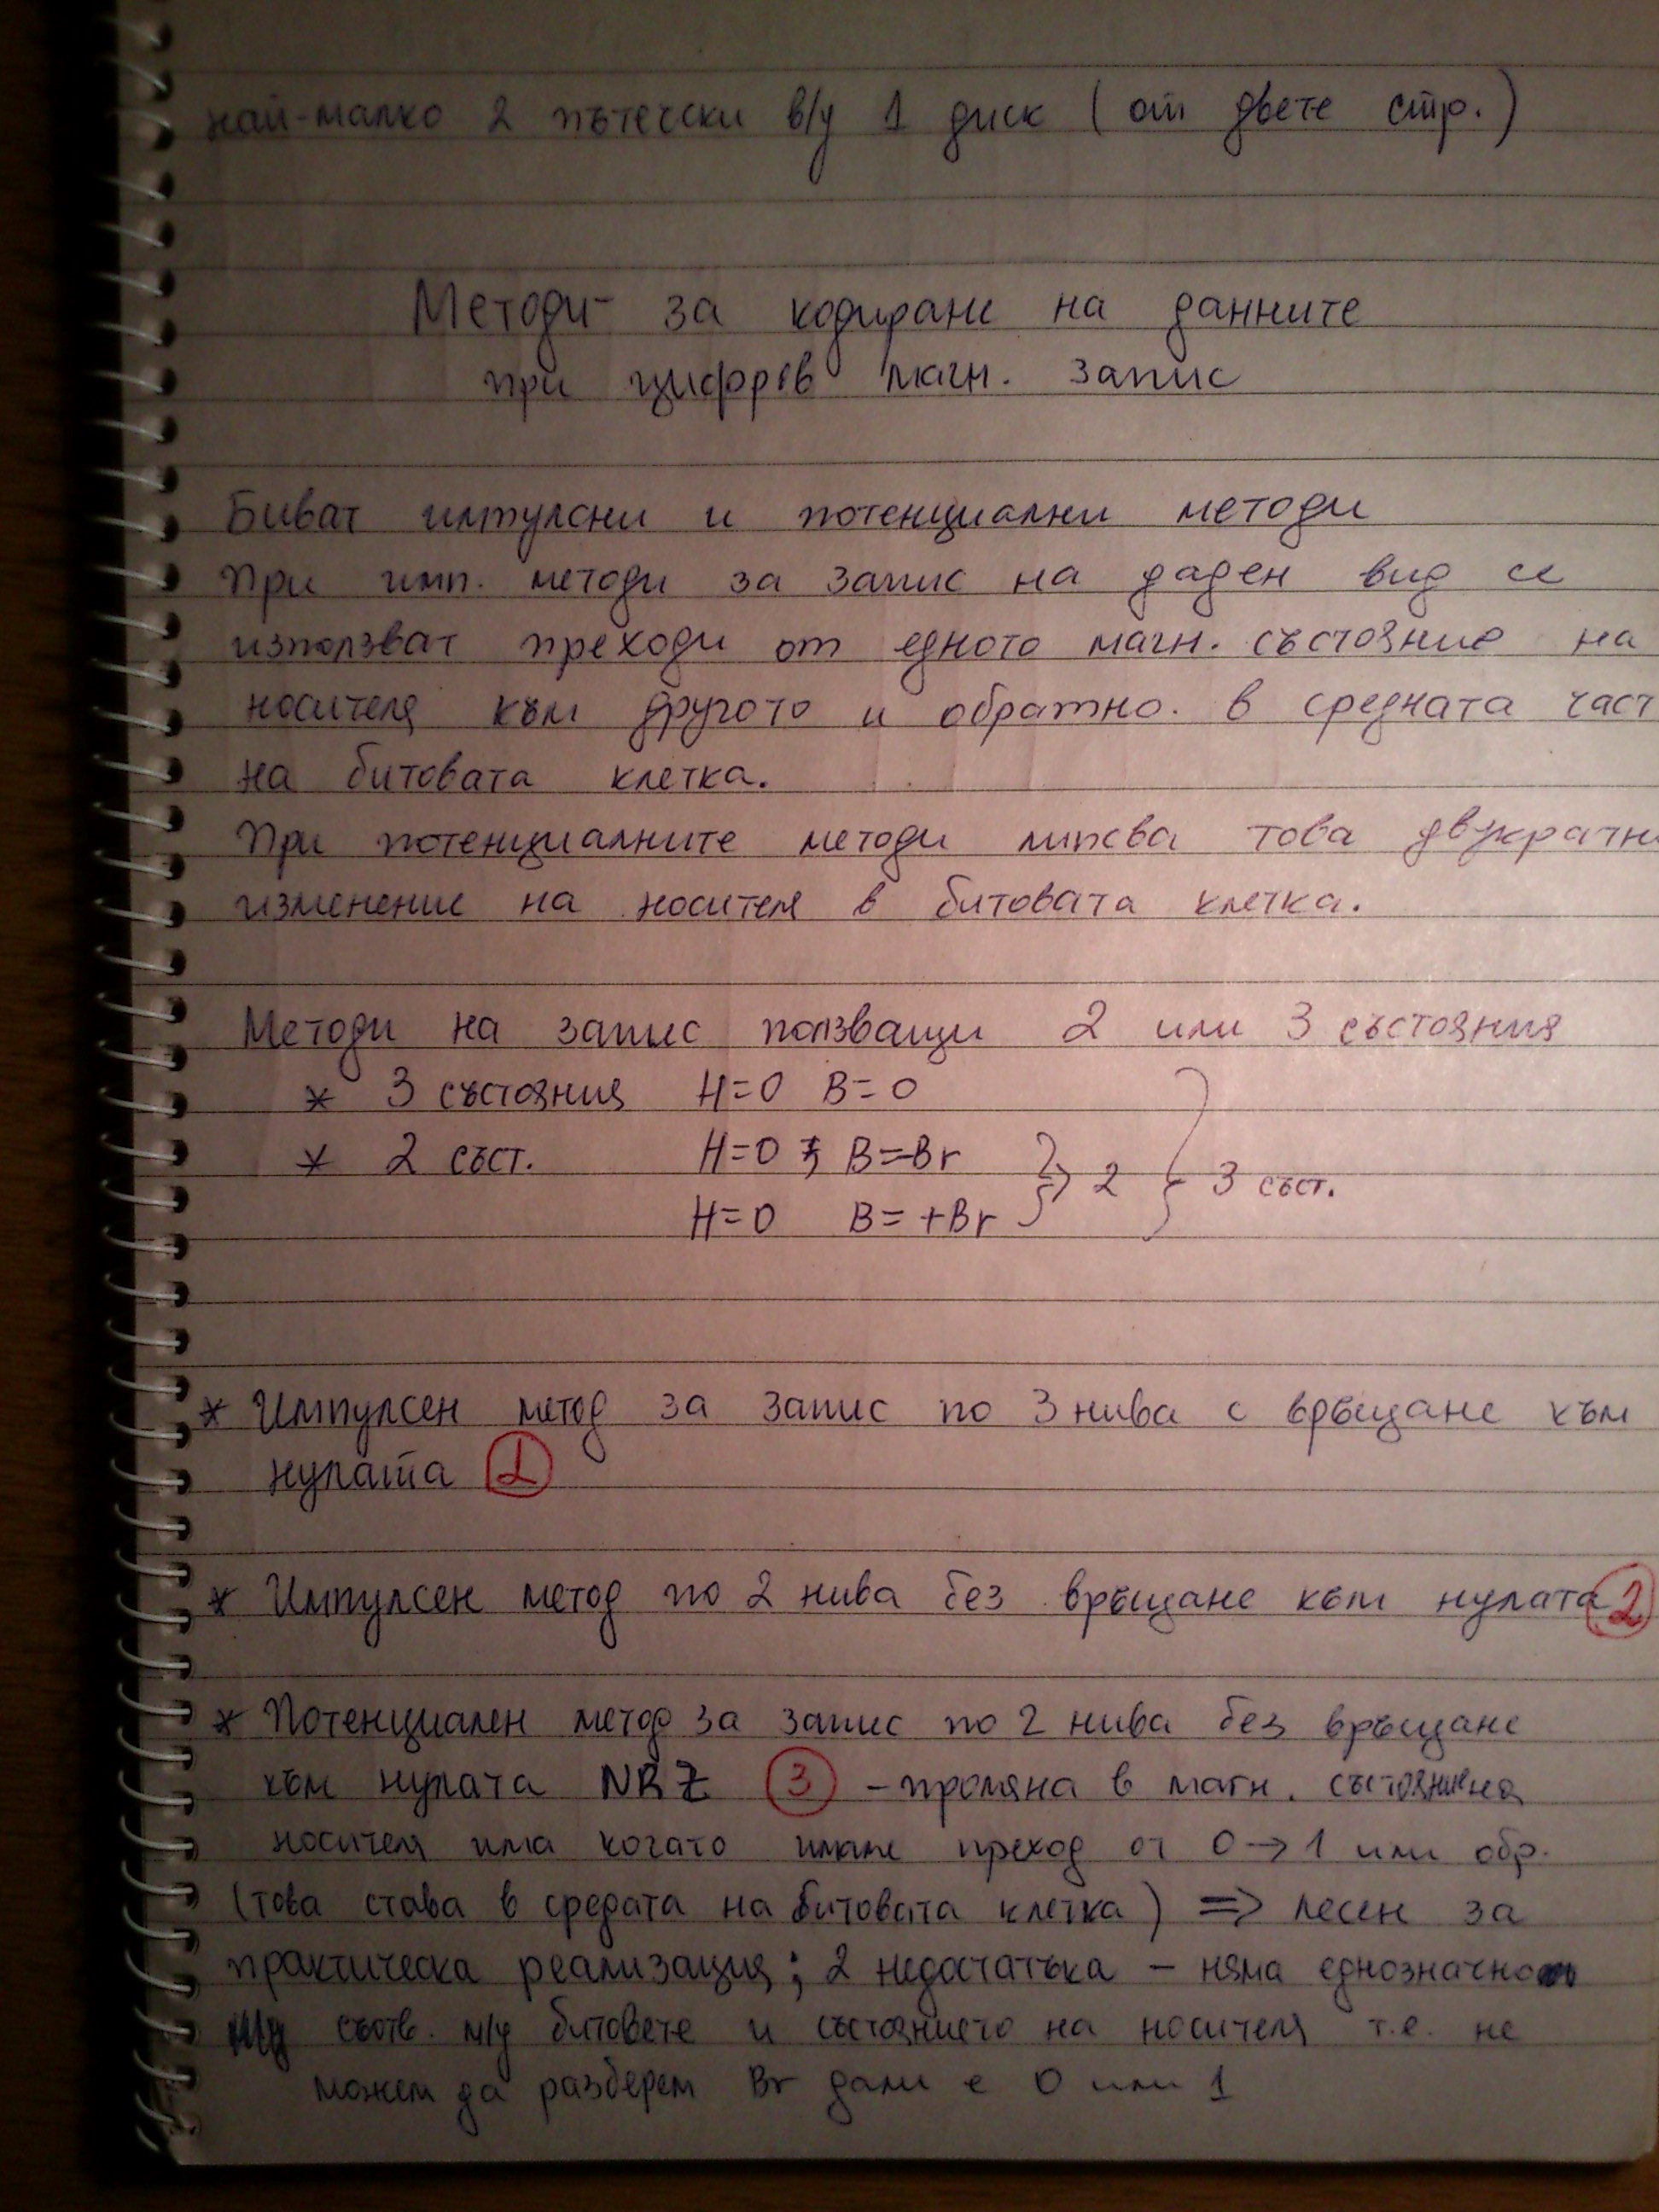 най-малко 2 пътечки в/у 1 диск (от двете стр.)
Методи за кодиране на данните
при цифров магн. запис
Биват импулсни и потенциални методи
При имп. методи за запис на даден вид се
използват преходи от едното магн. състояние на
носителя към другото и обратно. в средната част
на битовата клетка.
При потенциалните методи липсва това двукратн
изменение на носителя в битовата клетка.
Методи на запис ползващи 2 или 3 състояния
* 3 състояния H=0 B=0
* 2 съст. H=0 B=-Br
H=0 B=+Br } => 2 } 3 съст.
* Импулсен метод за запис по 3 нива с връщане към
нулата 1
* Импулсен метод по 2 нива без връщане към нулата 2
* Потенциален метод за запис по 2 нива без връщане
към нулата NRZ 3 - промяна в магн. състояние на
носителя има когато имаме преход от 0 -> 1 или обр.
(това става в средата на битовата клетка) => лесен за
практическа реализация; 2 недостатъка - няма еднозначно
съотв. м/у битовете и състоянието на носителя т.е. не
можем да разберем Br дали е 0 или 1